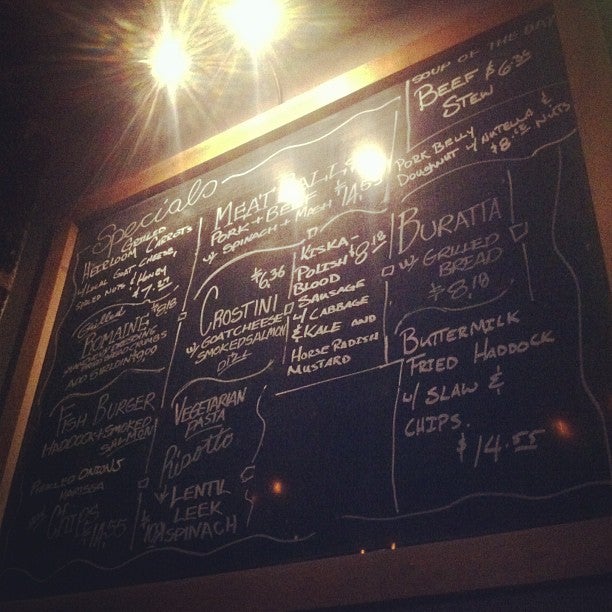 Specials
GRILLED
HEIRLOOM CARROTS
W/ LOCAL GOAT CHEESE,
SPICED NUTS & HONEY
$7.
Grilled
ROMAINE
FISH BURGER
HADDOCK + SMOKED
SALMON
PICKLED ONIONS
HARISSA
CHIPS $14.55
MEATBALLS
PORK + BEEF $14.55
W/ SPINACH + MASH
$6.36
CROSTINI
W/ GOATCHEESE
SMOKED SALMON
DILL
VEGETARIAN
PASTA
Risotto
W/ LENTIL
LEEK
SPINACH
KISKA -
POLISH $8.18
BLOOD
SAUSAGE
W/ CABBAGE
& KALE AND
HORSE RADISH
MUSTARD
SOUP OF THE DAY
BEEF &
STEW $6.35
PORK BELLY
DOUGNUT W/ NUTELLA &
$8.18 NUTS
BURATTA
W/ GRILLED
BREAD
$8.18
BUTTERMILK
FRIED HADDOCK
W/ SLAW &
CHIPS.
$14.55